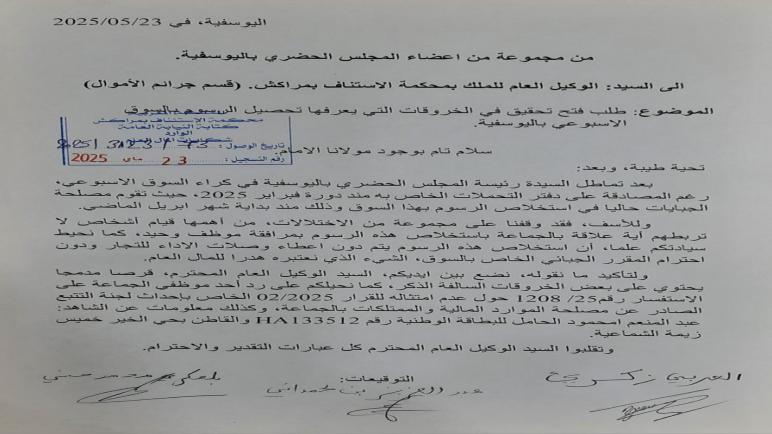 اليوسفية، في 2025/05/23
من مجموعة من اعضاء المجلس الحضري باليوسفية.
الى السيد: الوكيل العام للملك بمحكمة الاستئناف بمراكش. (قسم جرائم الأموال)
الموضوع: طلب فتح تحقيق في الخروقات التي يعرفها تحصيل الرسوم بالسوق
الاسبوعي باليوسفية.
محكمة الاستئناف بمراكش
كتابة النيابة العامة
الوارد
تاريخ الوصول:
رقم التسجيل: 23 ماي 2025
سلام تام بوجود مولانا الامام.
تحية طيبة، وبعد:
بعد تماطل السيدة رئيسة المجلس الحضري باليوسفية في كراء السوق الاسبوعي،
رغم المصادقة على دفتر التحملات الخاص به منذ دورة فبراير 2025، حيث تقوم مصلحة
الجبايات حاليا في استخلاص الرسوم بهذا السوق وذلك منذ بداية شهر ابريل الماضي.
وللأسف، فقد وقفنا على مجموعة من الاختلالات، من أهمها قيام أشخاص لا
تربطهم أية علاقة بالجماعة باستخلاص هذه الرسوم بمرافقة موظف وحيد، كما نحيط
سيادتكم علما، أن استخلاص هذه الرسوم يتم دون اعطاء وصلات الاداء للتجار ودون
احترام المقرر الجبائي الخاص بالسوق، الشيء الذي نعتبره هدرا للمال العام.
ولتأكيد ما نقوله، نضع بين ايديكم، السيد الوكيل العام المحترم، قرصا مدمجا
يحتوي على بعض الخروقات السالفة الذكر، كما نحيلكم على رد أحد موظفي الجماعة على
الاستفسار رقم25/ 1208 حول عدم امتثاله للقرار 02/2025 الخاص بإحداث لجنة التتبع
الصادر عن مصلحة الموارد المالية والممتلكات بالجماعة، وكذلك معلومات عن الشاهد:
عبد المنعم امحمود الحامل للبطاقة الوطنية رقم HA133512 والقاطن بحي الخير خميس
زيمة الشماعية.
وتقلبوا السيد الوكيل العام المحترم كل عبارات التقدير والاحترام.
التوقيعات:
العربي زكري